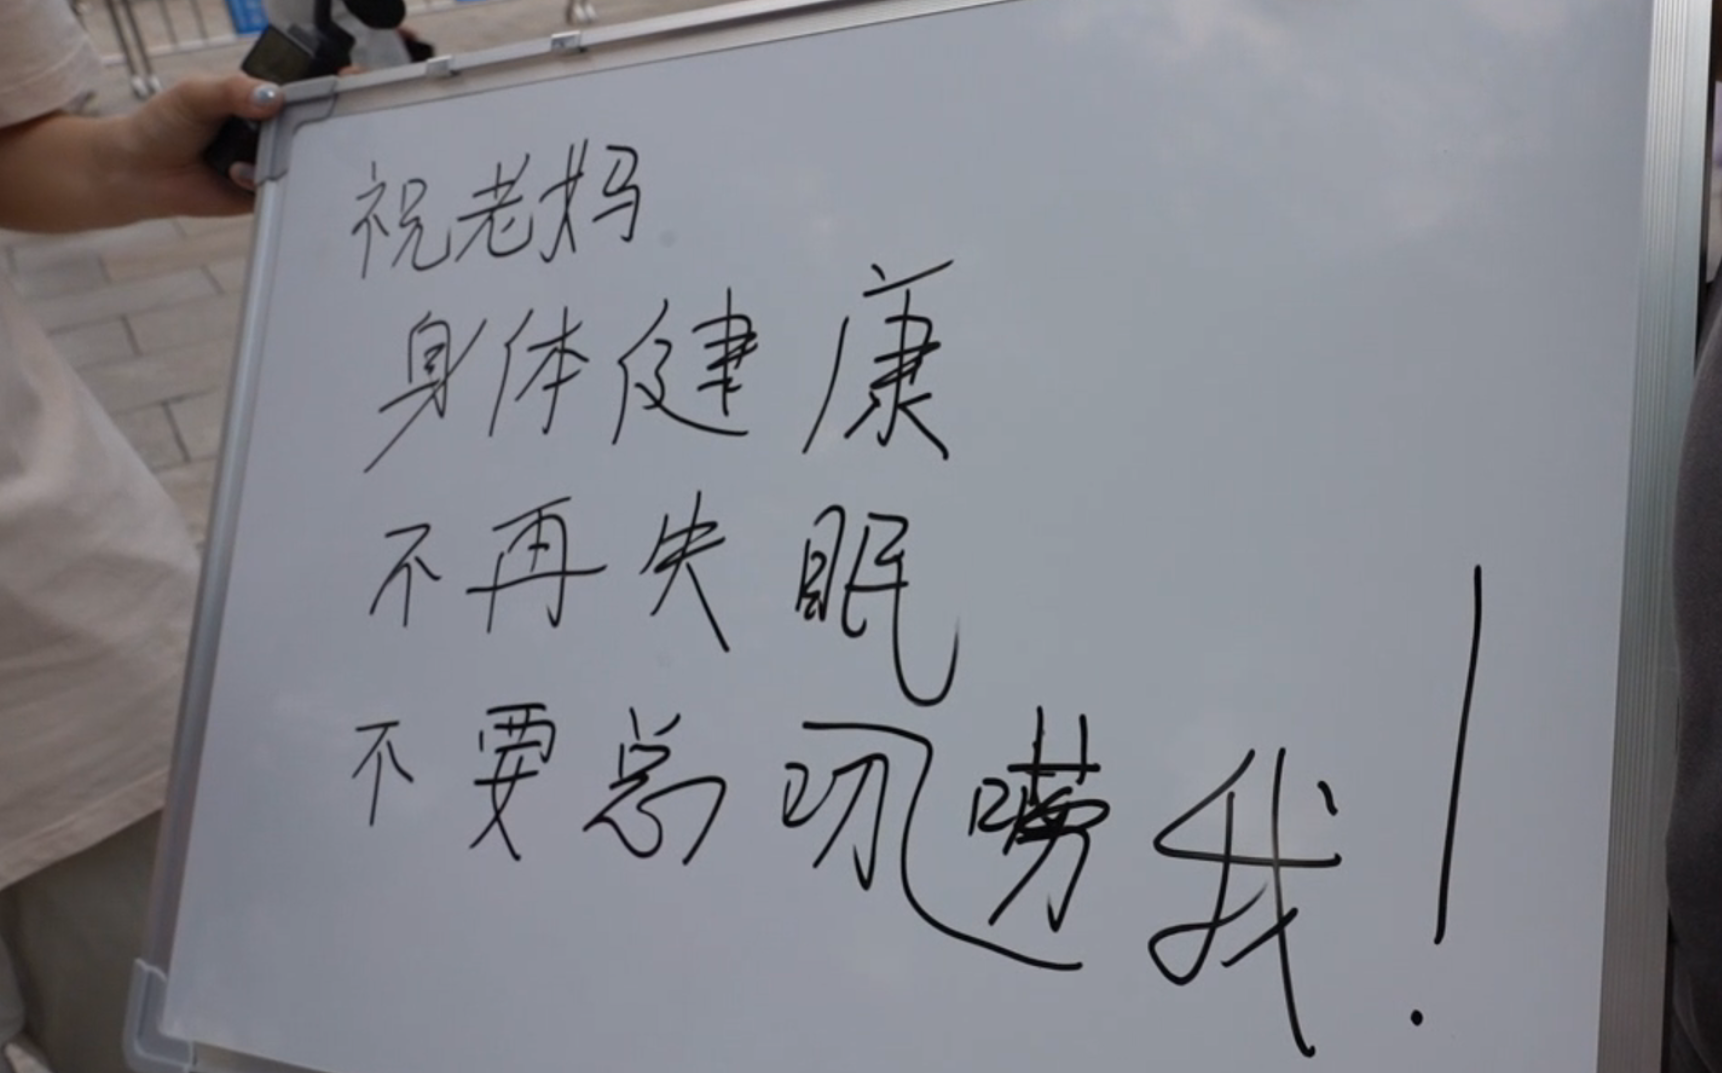 祝老妈
身体健康
不再失眠
不要总叨唠我！